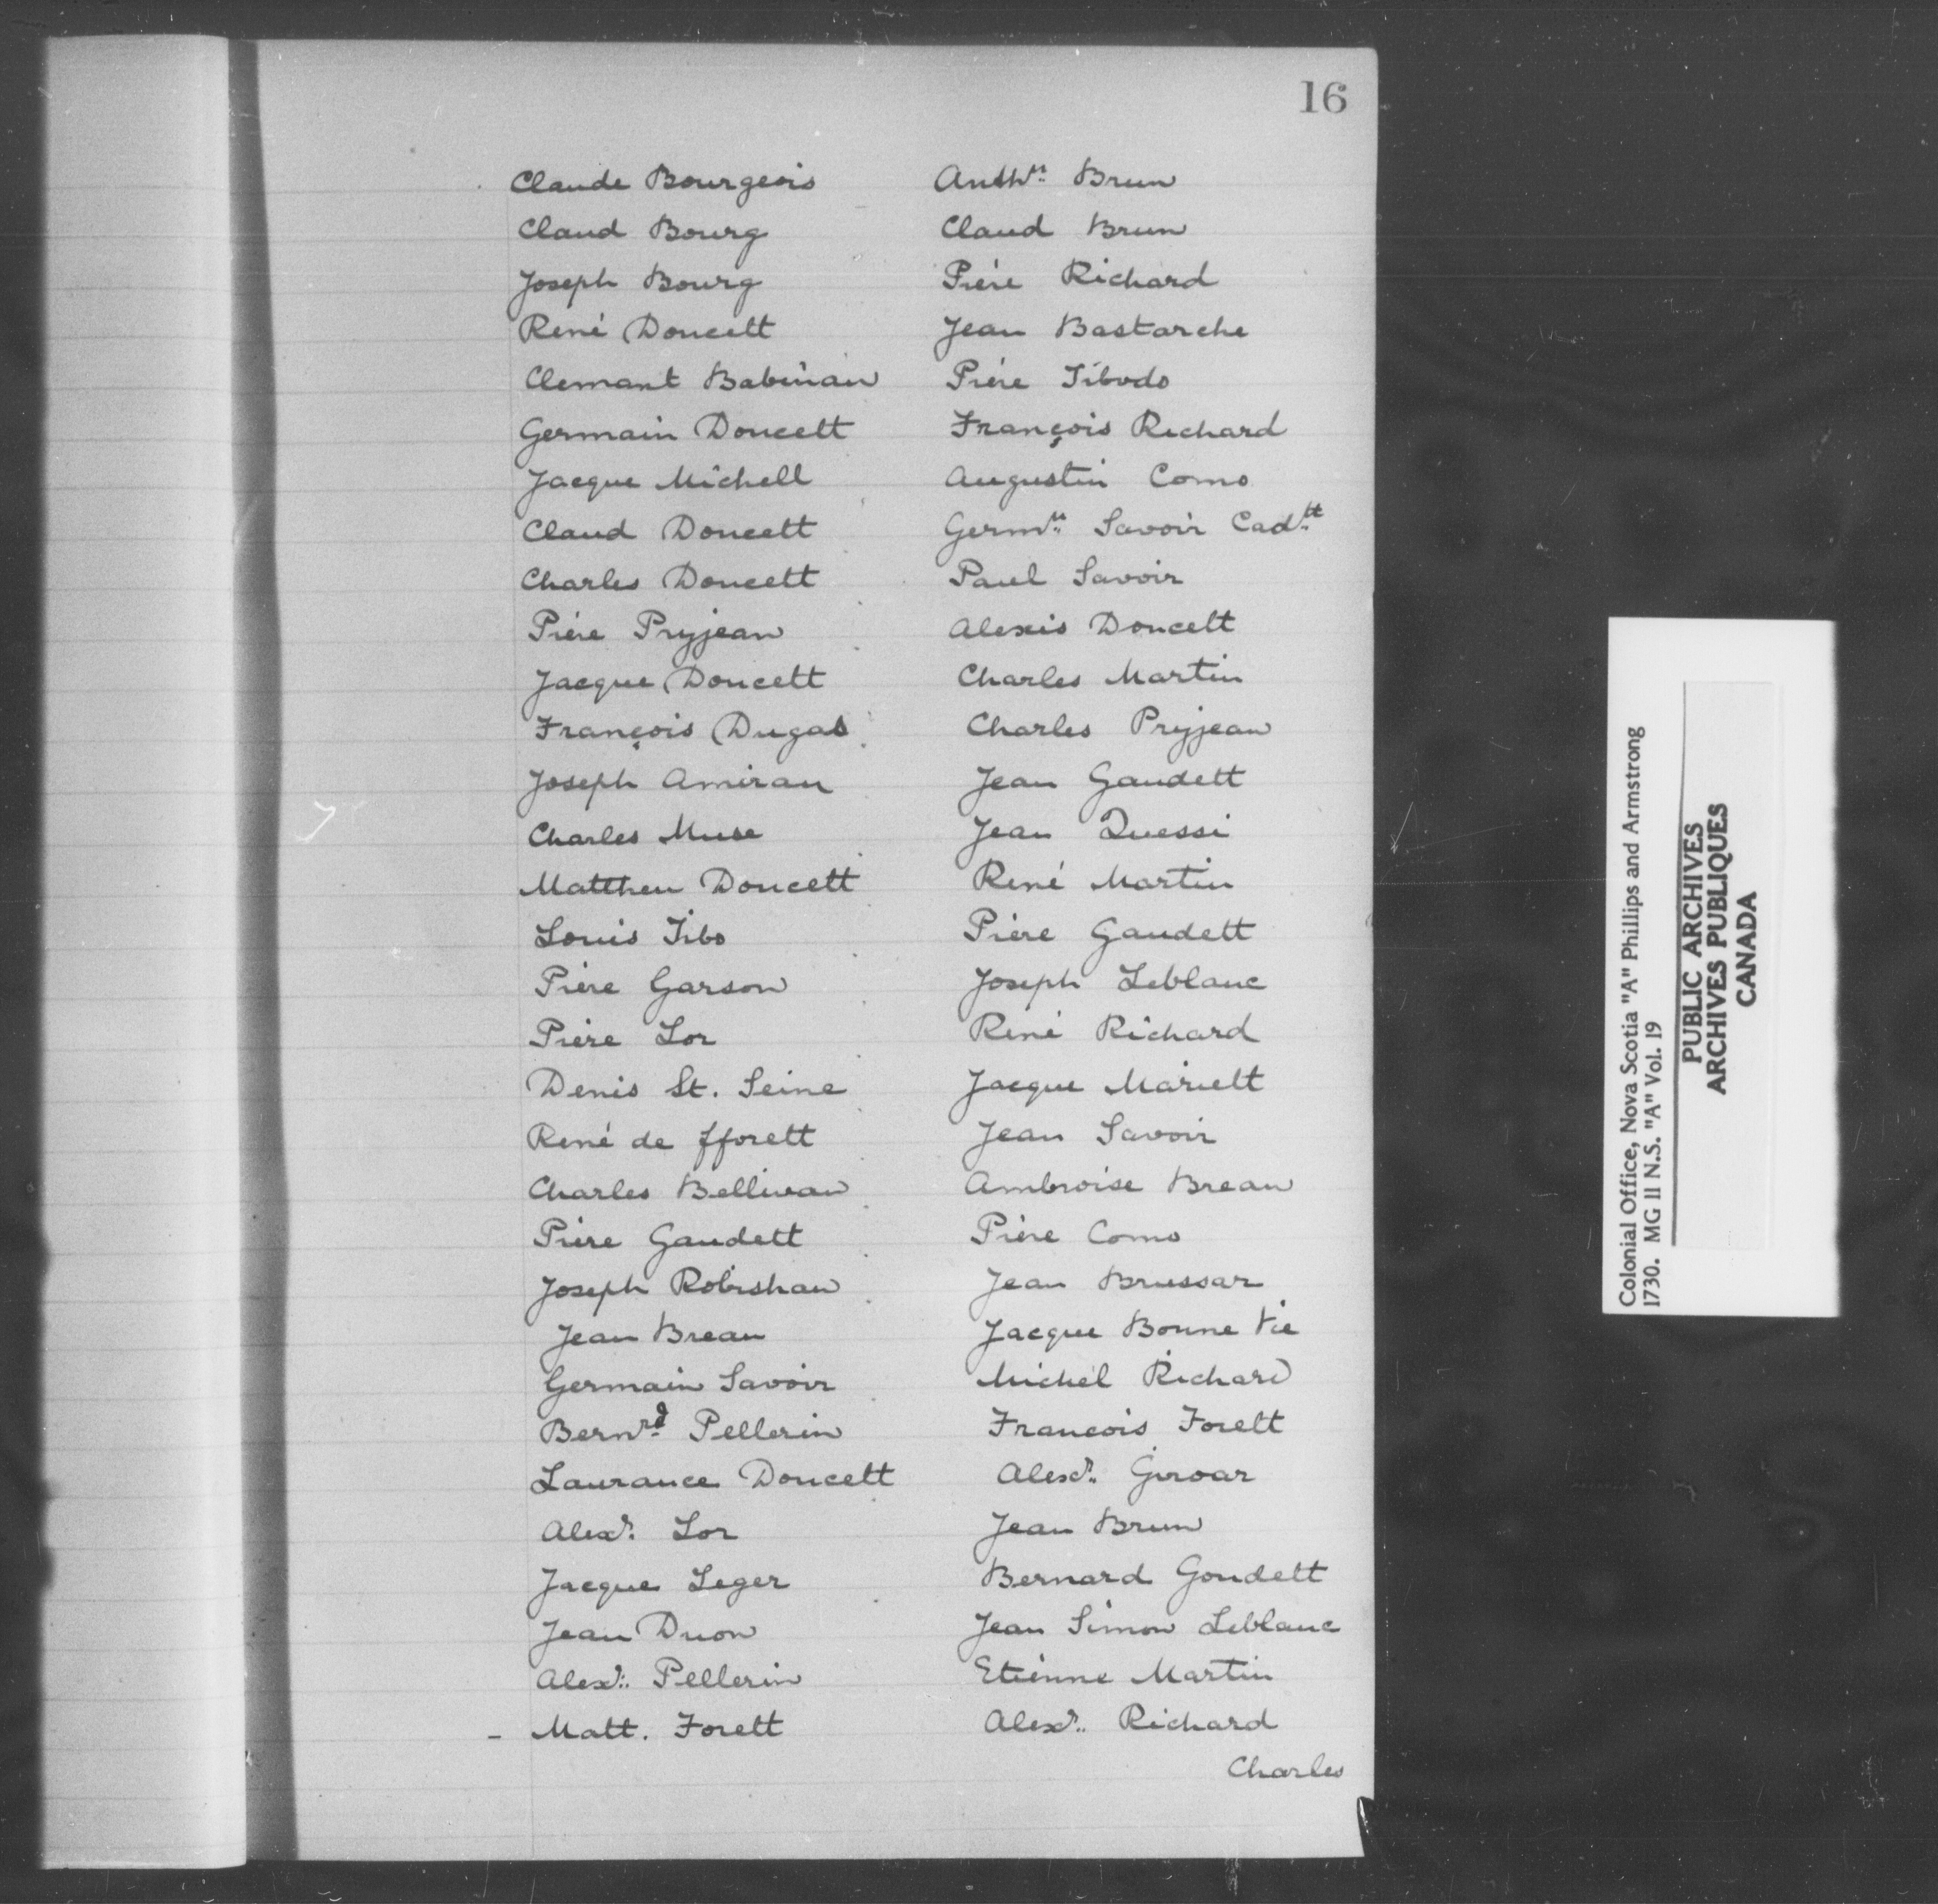 16
Claude Bourgeois
Claud Bourg
Joseph Bourg
René Doucett
Clemant Babinau
Germain Doucett
Jacque Michell
Claud Doucett
Charles Doucett
Piére Pryjean
Jacque Doucett
François Dugas
Joseph Amirau
Charles Muse
Mattheu Doucett
Louis Tibo
Piére Garson
Piére Lor
Denis St. Seine
René de fforett
Charles Bellivau
Piére Gaudett
Joseph Robishau
Jean Breau
Germain Savoir
Bernrd Pellerin
Laurance Doucett
Alexr. Lor
Jacque Leger
Jean Duon
Alexr. Pellerin
- Matt. Forett
Anthn. Brun
Claud Brun
Piére Richard
Jean Bastarche
Piére Tibodo
François Richard
Augustin Como
Germn. Savoir Cadtt.
Paul Savoir
Alexis Doucett
Charles Martin
Charles Pryjean
Jean Gaudett
Jean Quessi
René Martin
Piére Gaudett
Joseph Leblanc
René Richard
Jacque Mariett
Jean Savoir
Ambroise Breau
Piére Como
Jean Brussar
Jacque Bonne Vie
Michel Richard
Francois Forett
Alexr. Giroar
Jean Brun
Bernard Goudett
Jean Simon Leblanc
Etiénne Martin
Alexr. Richard
Charles
Colonial Office, Nova Scotia "A" Phillips and Armstrong
1730. MG II N.S. "A" Vol. 19
PUBLIC ARCHIVES
ARCHIVES PUBLIQUES
CANADA